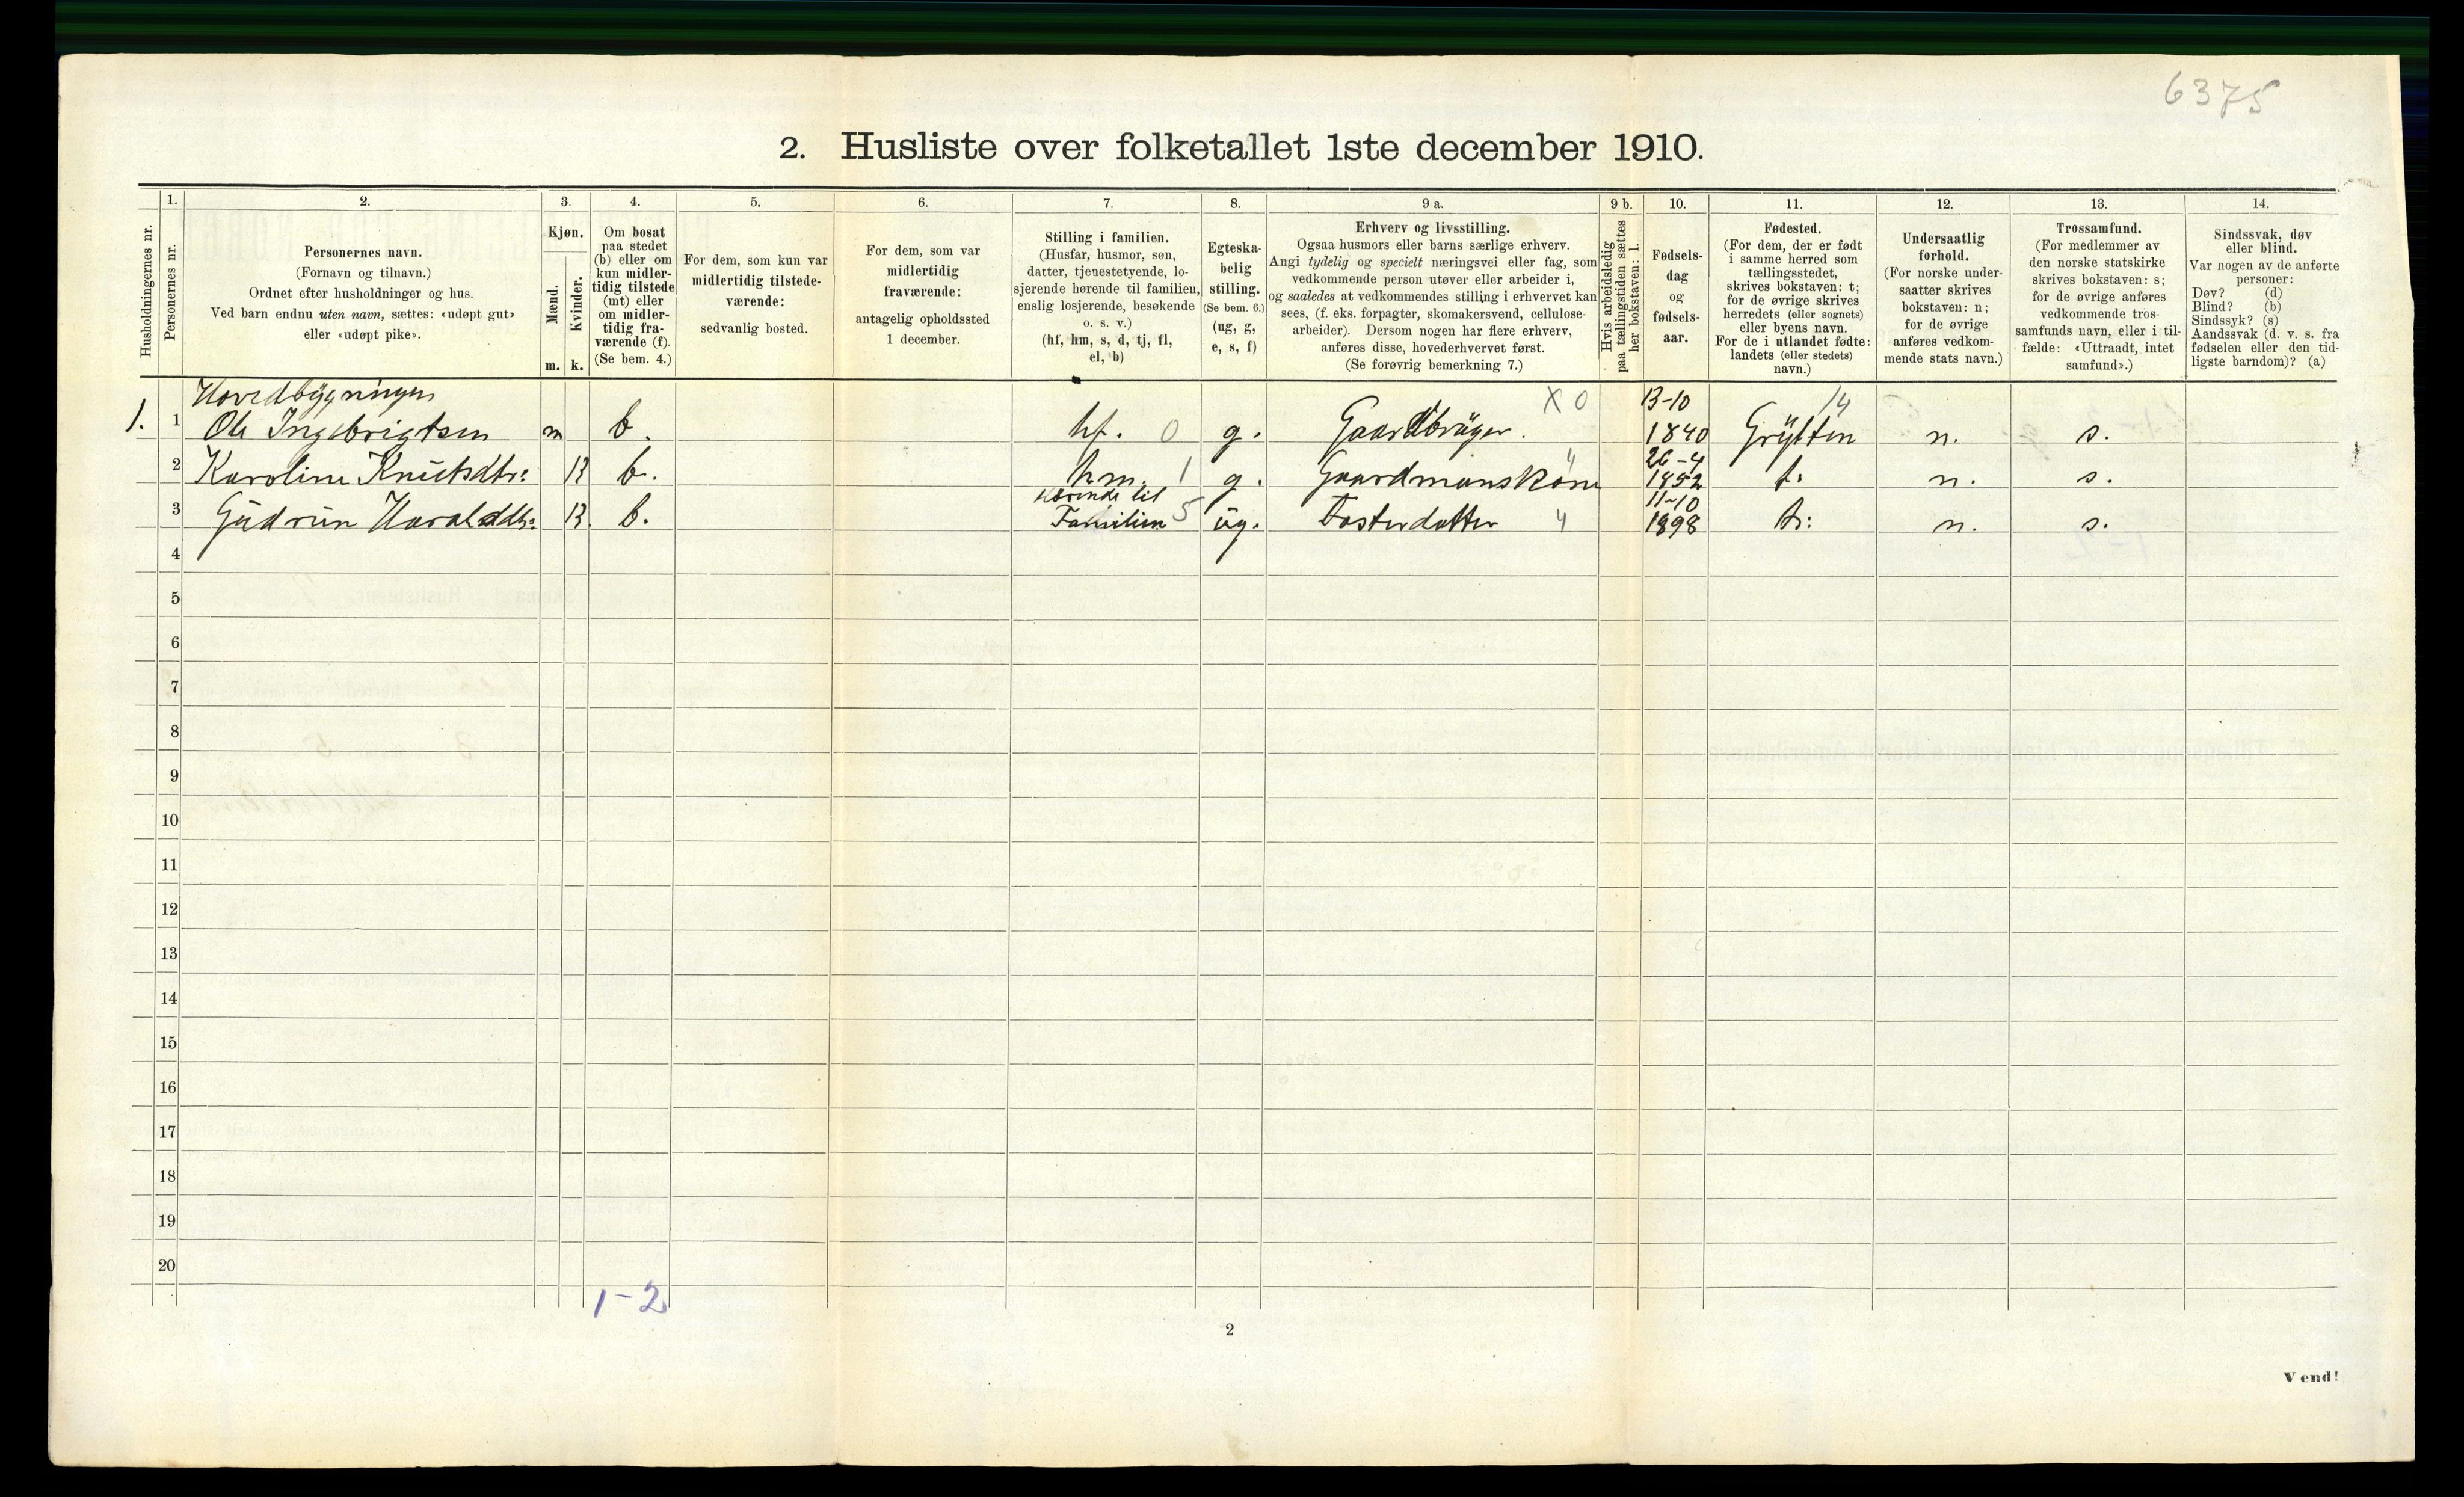 6375
2. Husliste over folketallet 1ste december 1910.
1. 2. 3. 4. 5. 6. 7. 8. 9 a. 9 b. 10. 11. 12. 13. 14.
Husholdningernes nr.
Personernes nr.
Personernes navn.
(Fornavn og tilnavn.)
Ordnet efter husholdninger og hus.
Ved barn endnu uten navn, sættes: «udøpt gut»
eller «udøpt pike».
Kjøn.
Mænd.
Kvinder.
m. k.
Om bosat
paa stedet
(b) eller om
kun midler-
tidig tilstede
(mt) eller
om midler-
tidig fra-
værende (f).
(Se bem. 4.)
For dem, som kun var
midlertidig tilstede-
værende:
sedvanlig bosted.
For dem, som var
midlertidig
fraværende:
antagelig opholdssted
1 december.
Stilling i familien.
(Husfar, husmor, søn,
datter, tjenestetyende, lo-
sjerende hørende til familien,
enslig losjerende, besøkende
o. s. v.)
(hf, hm, s, d, tj, fl,
el, b)
Egteska-
belig
stilling.
(Se bem. 6.)
(ug, g,
e, s, f)
Erhverv og livsstilling.
Ogsaa husmors eller barns særlige erhverv.
Angi tydelig og specielt næringsvei eller fag, som
vedkommende person utøver eller arbeider i,
og saaledes at vedkommendes stilling i erhvervet kan
sees, (f. eks. forpagter, skomakersvend, cellulose-
arbeider). Dersom nogen har flere erhverv,
anføres disse, hovederhvervet først.
(Se forøvrig bemerkning 7.)
Hvis arbeidsledig
paa tællingstiden sættes
her bokstaven: l.
Fødsels-
dag
og
fødsels-
aar.
Fødested.
(For dem, der er født
i samme herred som
tællingsstedet,
skrives bokstaven: t;
for de øvrige skrives
herredets (eller sognets)
eller byens navn.
For de i utlandet fødte:
landets (eller stedets)
navn.)
Undersaatlig
forhold.
(For norske under-
saatter skrives
bokstaven: n;
for de øvrige
anføres vedkom-
mende stats navn.)
Trossamfund.
(For medlemmer av
den norske statskirke
skrives bokstaven: s;
for de øvrige anføres
vedkommende tros-
samfunds navn, eller i til-
fælde: «Uttraadt, intet
samfund».)
Sindssvak, døv
eller blind.
Var nogen av de anførte
personer:
Døv? (d)
Blind? (b)
Sindssyk? (s)
Aandssvak (d. v. s. fra
fødselen eller den tid-
ligste barndom)? (a)
Hovedbygningen X 0 13-10 14
1. 1 Ole Ingebrigtsen m b. hf. 0 g. Gaardbruger. 1840 Grytten n. s.
26-4
2 Karoline Knutsdtr: K b. hm. 1 g. Gaardmanskone 4 1852 t. n. s.
hørende til 11-10
3 Gudrun Haraldsdtr: K. b. Familien 5 ug. Fosterdatter 4 1898 t: n. s.
4
5
6
7
8
9
10
11
12
13
14
15
16
17
18
19
20
1-2
2
Vend!